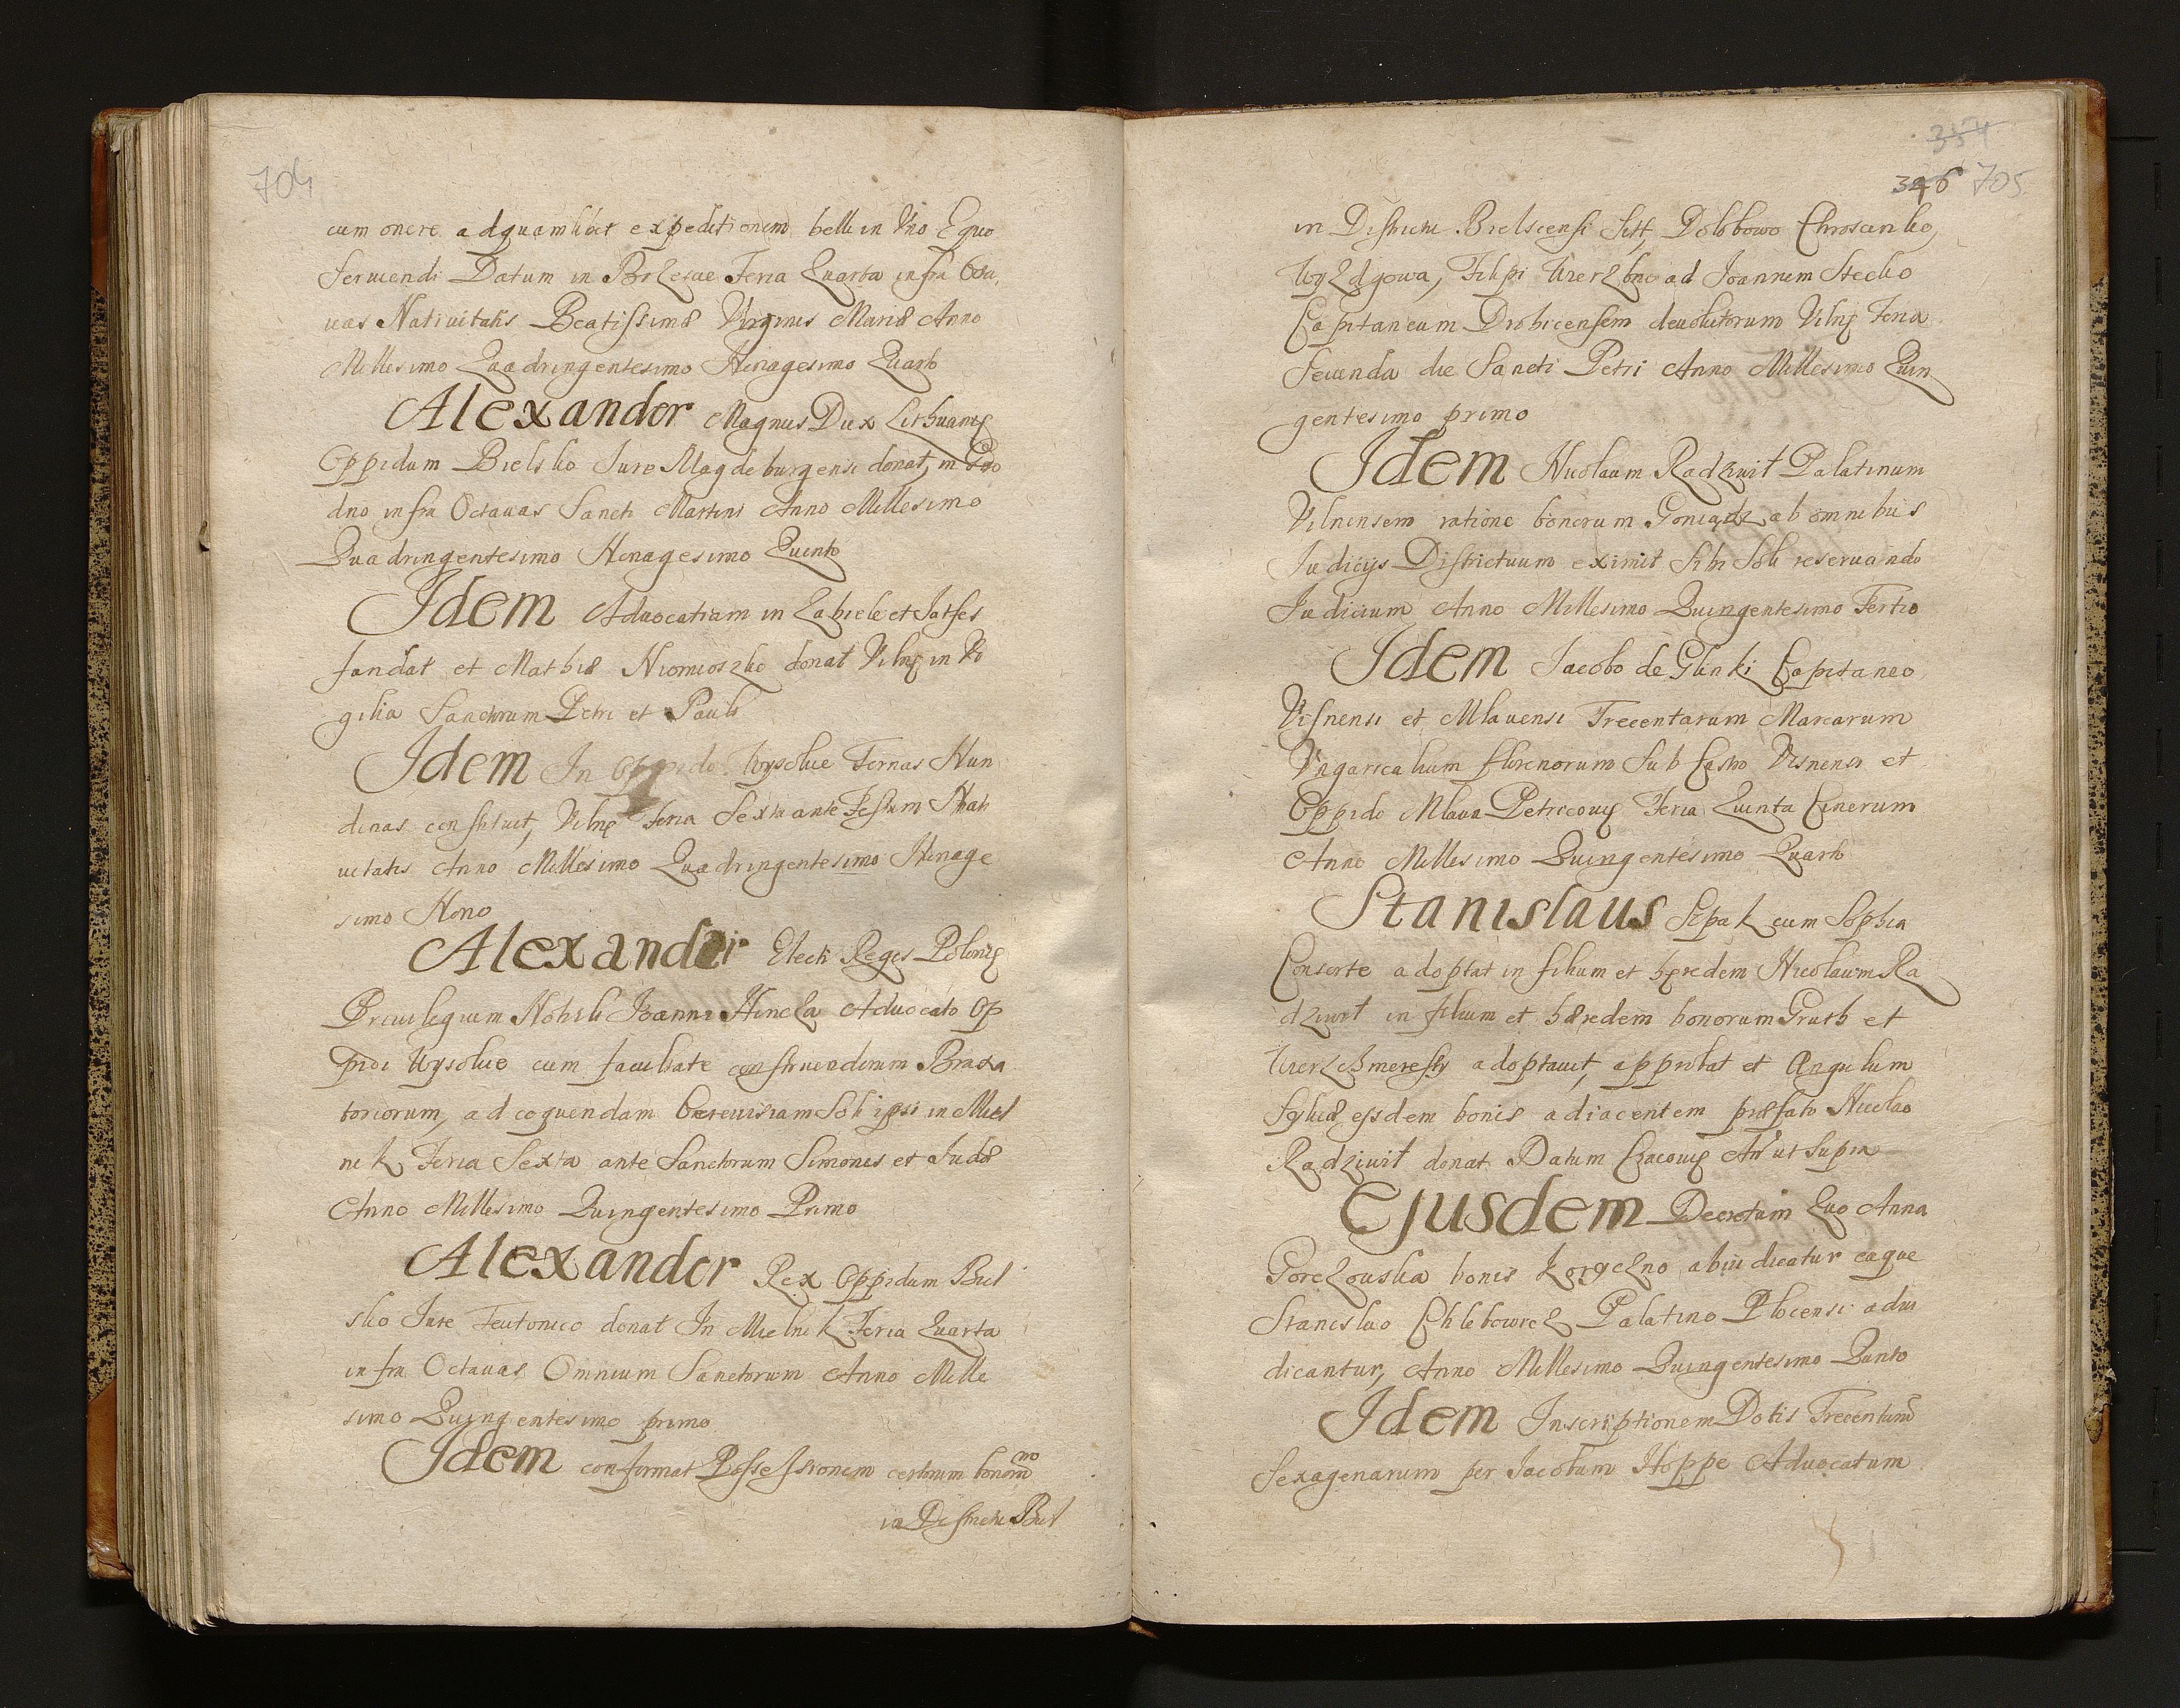 704
cum onere adquamlibet expeditionem belli in Vno Equo
Seruiendi Datum in Brzescie Feria Quarta infra Octa,
uas Natiuitatis Beatissimæ Virginis Mariæ Anno
Millesimo Quadringentesimo Nonagesimo Quarto
Alexander Magnus Dux Lithuanię
Oppidum Bielsko Jure Magdeburgensi donat, in Gro
dno infra Octauas Sancti Martini Anno Millesimo
Quadringentesimo Nonagesimo Quinto
Idem Aduocatiam in Zabiele et Jatfes
fundat et Mathiæ Niomioszko donat Vilnę in Vi
gilia Sanctorum Petri et Pauli
Idem In Oppido Wysokie Fornas Nun
dinas constituit, Vilnę Feria Sexta ante Festum Nati
uitatis Anno Millesimo Quadringentesimo Nonage
simo Nono
Alexandri Electi Regis Polonię
Priuilegium Nobili Joanni Hincza Aduocato Op
pidi Wysokie cum facultate construendorum Braxa
toriorum, ad coquendam Cereuisiam Soli ipsi in Miel
nik Feria Sexta ante Sanctorum Simonis et Judæ
Anno Millesimo Quingentesimo Primo
Alexander Rex Oppidum Biel
sko Jure Teutonico donat In Mielnik Feria Quarta
infra Octauas Omnium Sanctorum Anno Mille
simo Quingentesimo primo
Idem confirmat Possessionem certorum bonorum
in Districtu Biel
354
346 705
in Districtu Bielscensi Sitt, Dolobowo Chroscinko,
Wyzdgowa, Filipi Wierzbno ad Joannem Stecko
Capitaneum Drohicensem deuolutorum Vilnę Feria
Secunda die Sancti Petri Anno Millesimo Quin
gentesimo primo
Idem Nicolaum Radziwit Palatinum
Vilnensem ratione bonorum Goniądz ab omnibus
Judicijs Districtuum eximit Sibi Soli reseruando
Judicium Anno Millesimo Quingentesimo Tertio
Idem Jacobo de Glinki Capitaneo
Visnensi et Mlauensi Trecentarum Marcarum
Vngaricalium florenorum Sub Castro Visnensi et
Oppido Mlaua Petricouię Feria Quinta Cinerum
Anno Millesimo Quingentesimo Quarto
Stanislaus Sepak cum Sophia
Consorte adoptat in filium et hęredem Nicolaum Ra
dziwit in filium et hæredem bonorum Gruth et
adoptauit, approbat et Angulum
Syluæ ejsdem bonis adiacentem præfato Nicolao
Radziwit donat Datum Cracouię Añ ut Supra
Ejusdem Decretum Quo Anna
Gorczouska bonis abiudicatur eaque
Stanislao Chlebowicz Palatino Plocensi adiu
dicantur, Anno Millesimo Quingentesimo Quinto
Idem Inscriptionem Dotis Trecentarũ
Sexagenarum per Jacobum Hoppe Aduocatum